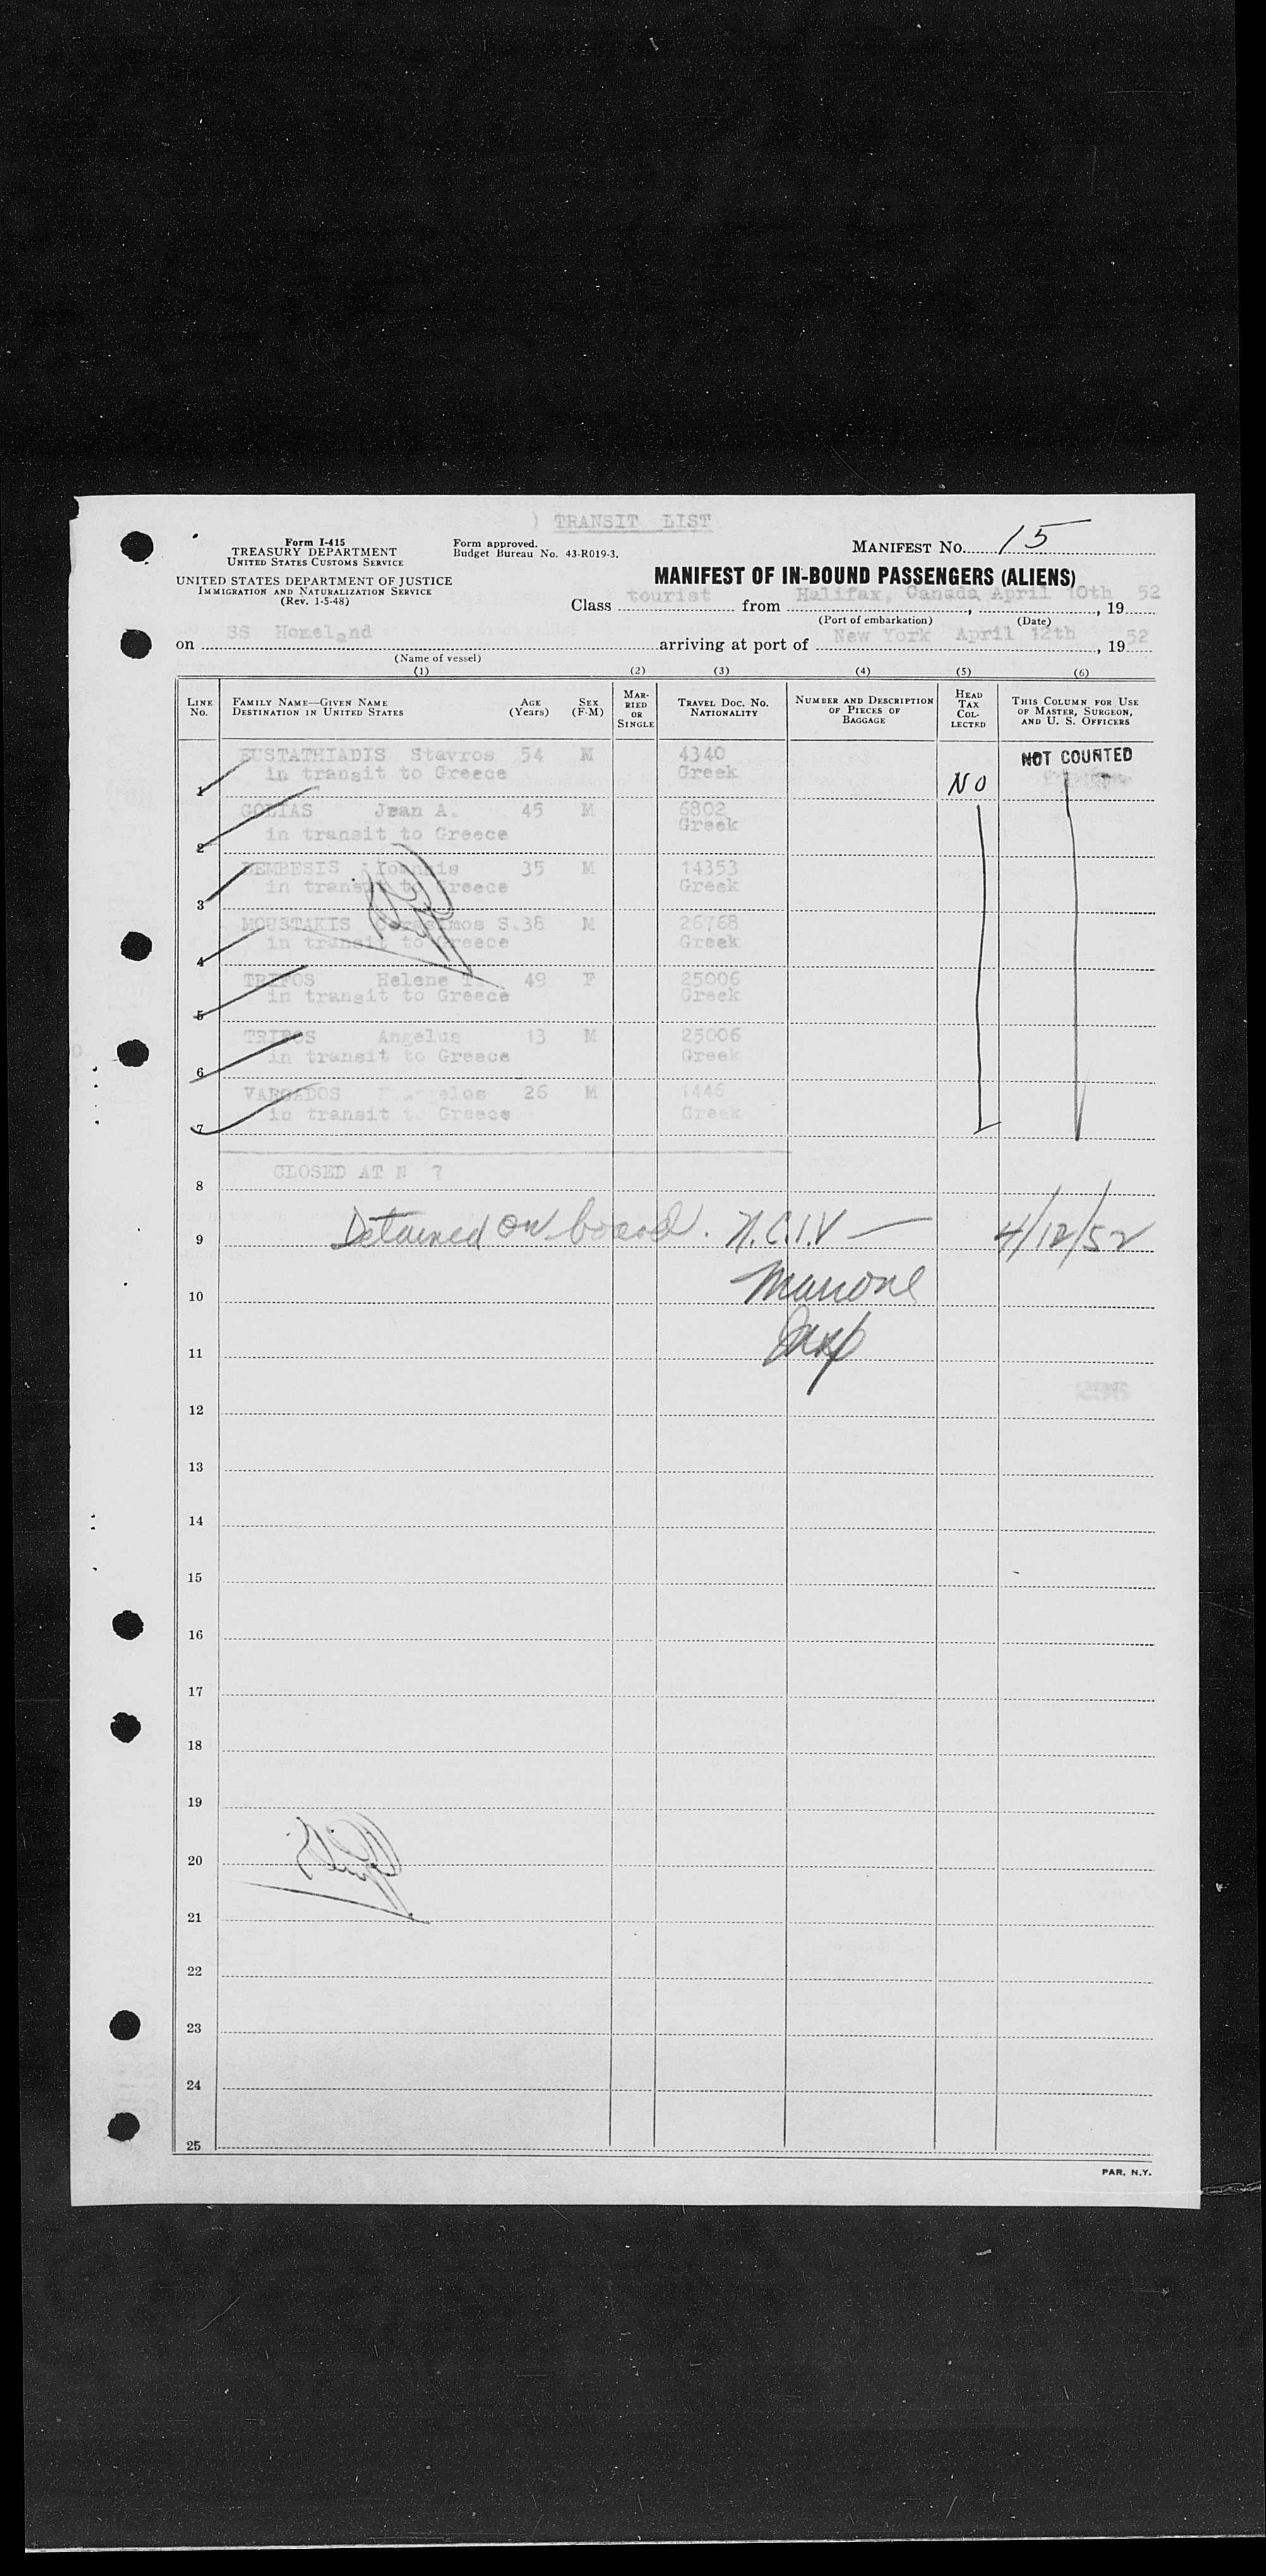 ) TRANSIT LIST
Form I-415
TREASURY DEPARTMENT
UNITED STATES CUSTOMS SERVICE
UNITED STATES DEPARTMENT OF JUSTICE
IMMIGRATION AND NATURALIZATION SERVICE
(Rev. 1-5-48)
Form approved.
Budget Bureau No. 43-R019-3.
MANIFEST NO. 15
MANIFEST OF IN-BOUND PASSENGERS (ALIENS)
Class tourist from Halifax, Canada, April 10th, 1952
(Port of embarkation) (Date)
on SS Homeland arriving at port of New York April 12th, 1952
(Name of vessel)
(1) (2) (3) (4) (5) (6)
LINE NO. FAMILY NAME—GIVEN NAME DESTINATION IN UNITED STATES AGE (Years) SEX (F-M) MARRIED OR SINGLE TRAVEL DOC. NO. NATIONALITY NUMBER AND DESCRIPTION OF PIECES OF BAGGAGE HEAD TAX COLLECTED THIS COLUMN FOR USE OF MASTER, SURGEON, AND U. S. OFFICERS
EUSTATHIADIS Stavros 54 M 4340 NOT COUNTED
1 in transit to Greece Greek NO
GOLIAS Jean A. 45 M 6802
2 in transit to Greece Greek
DEMBESIS Ioannis 35 M 14353
3 in transit to Greece Greek
MOUSTAKIS Gerasimos S. 38 M 26768
4 in transit to Greece Greek
Helene 49 F 25006
5 in transit to Greece Greek
Angelus 13 M 25006
6 in transit to Greece Greek
26 M 1446
7 in transit to Greece Greek
8 CLOSED AT N 7
9 Detained on board. N.C.I.V — 4/12/52
10
11
12
13
14
15
16
17
18
19
20
21
22
23
24
25
PAR. N.Y.